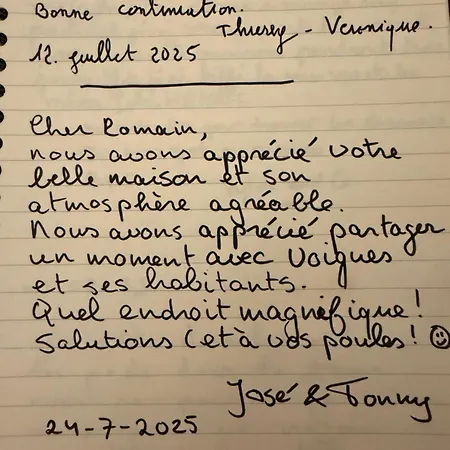 Bonne continuation.
Thierry - Veronique.
12. juillet 2025
Cher Romain,
nous avons apprécié votre
belle maison et son
atmosphère agréable.
Nous avons apprécié partager
un moment avec Voigues
et ses habitants.
Quel endroit magnifique!
Salutions (et à vos poules! ☺
José & Tonny
24-7-2025